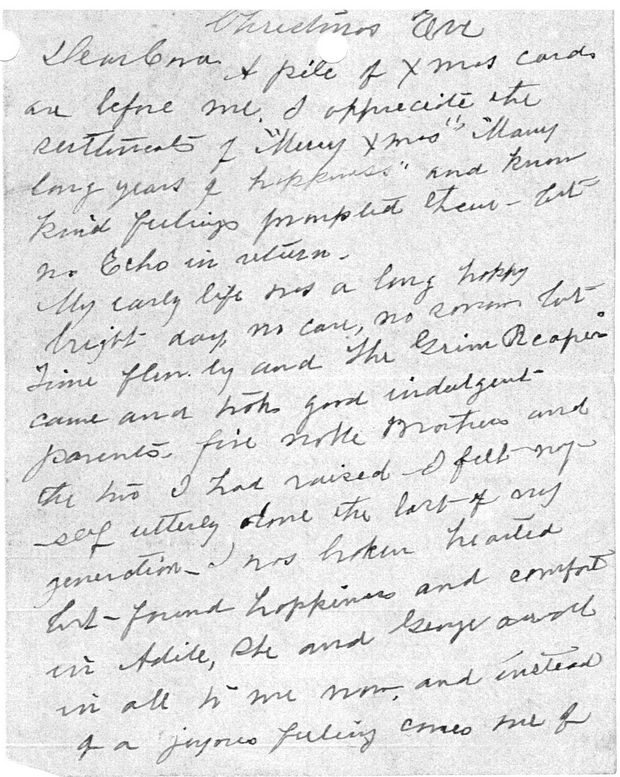 Christmas Eve
Dear Cora. A pile of Xmas cards
are before me. I appreciate the
sentiments of "Merry Xmas" "Many
long years of happiness" and know
kind feelings prompted them - but
no Echo in return -
My early life was a long happy
bright day, no care, no sorrow but
Time flew by and the Grim Reaper
came and took good indulgent
parents, five noble Brothers and
the two I had raised - I felt my-
self utterly alone the last of my
generation - I was broken hearted
but - found happiness and comfort
in Adile, She and George
in all to me now, and instead
of a joyous feeling comes one of